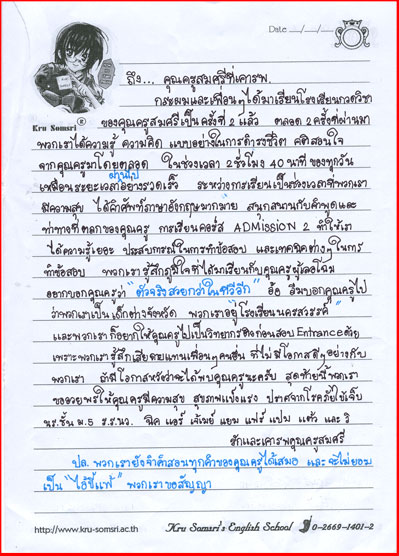 Date __/__/__
Kru Somsri ®
ถึง... คุณครูสมศรีที่เคารพ
กระผมและเพื่อนๆได้มาเรียนโรงเรียนกวดวิชา
ของคุณครูสมศรีเป็นครั้งที่ 2 แล้ว ตลอด 2 ครั้งที่ผ่านมา
พวกเราได้ความรู้ ความคิด แบบอย่างในการดำรงชีวิต คติสอนใจ
จากคุณครูมาโดยตลอด ในช่วงเวลา 2 ชั่วโมง 40 นาที ของทุกวัน
ผ่านไป
เหมือนระยะเวลาอย่างรวดเร็ว ระหว่างการเรียนเป็นช่วงเวลาที่พวกเรา
มีความสุข ได้คำศัพท์ภาษาอังกฤษมากมาย สนุกสนานกับคำพูดและ
ท่าทางที่ตลกของคุณครู การเรียนคอร์ส ADMission 2 ทำให้เรา
ได้ความรู้เยอะ ประสบการณ์ในการทำข้อสอบ และเทคนิคต่างๆในการ
ทำข้อสอบ พวกเรารู้สึกภูมิใจที่ได้มาเรียนกับคุณครูผู้เลอโฉม
ออกบอกคุณครูว่า "ตัวจริงสวยกว่าในทีวีอีก" อ้อ ลืมบอกคุณครูไป
ว่าพวกเราเป็นเด็กต่างจังหวัด พวกเราอยู่โรงเรียนนครสวรรค์
และพวกเราก็อยากให้คุณครูไปเป็นวิทยากรติวก่อนสอบ Entrance ด้วย
เพราะพวกเรารู้สึกเสียดายแทนเพื่อนๆคนอื่น ที่ไม่มีโอกาสดีๆอย่างกับ
พวกเรา ถ้ามีโอกาสหวังว่าจะได้พบคุณครูนะครับ สุดท้ายนี้พวกเรา
ขออวยพรให้คุณครูมีความสุข สุขภาพแข็งแรง ปราศจากโรคภัยไข้เจ็บ
นร.ชั้น ม.5 ร.ร.นว. ฉิค แอร์ เจ้มย์ แยม แฟร์ แปม แต้ว และ วิ
รักและเคารพคุณครูสมศรี
ปล. พวกเรายังจำคำสอนทุกคำของคุณครูได้เสมอ และจะไม่ยอม
เป็น "ไอ้ขี้แพ้" พวกเราขอสัญญา
http://www.kru-somsri.ac.th
Kru Somsri's English School
0-2669-1401-2